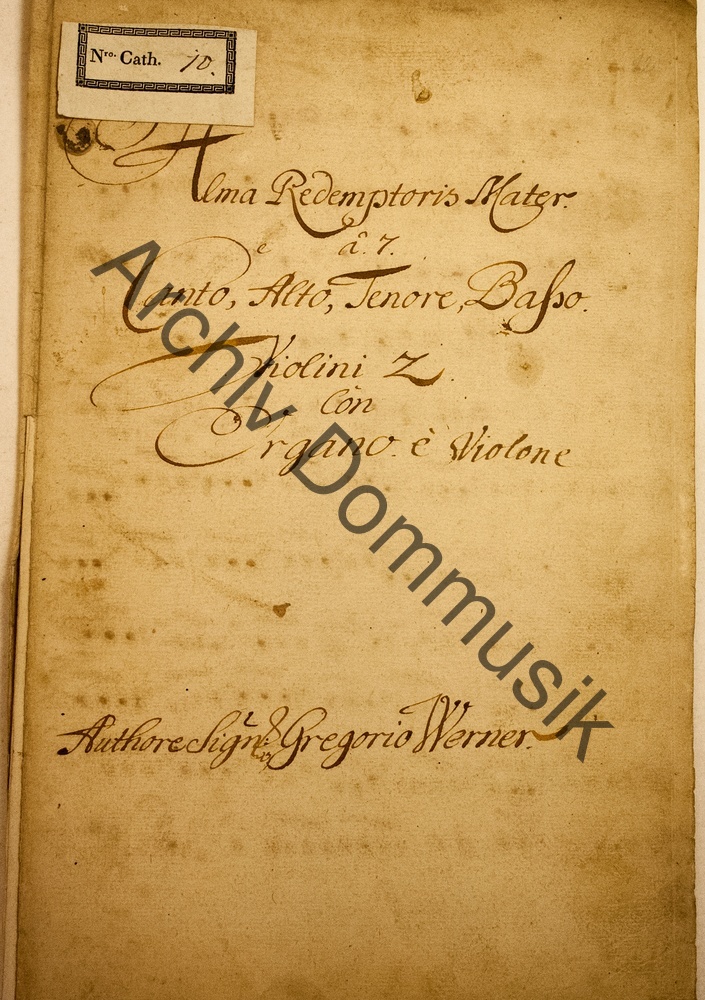 Nro. Cath. 10.
Alma Redemptoris Mater.
â. 7.
Canto, Alto, Tenore, Baſso.
Violini 2.
Con
Organo. è Violone
Authore Sign: Gregorio Werner.
Archiv Dommusik